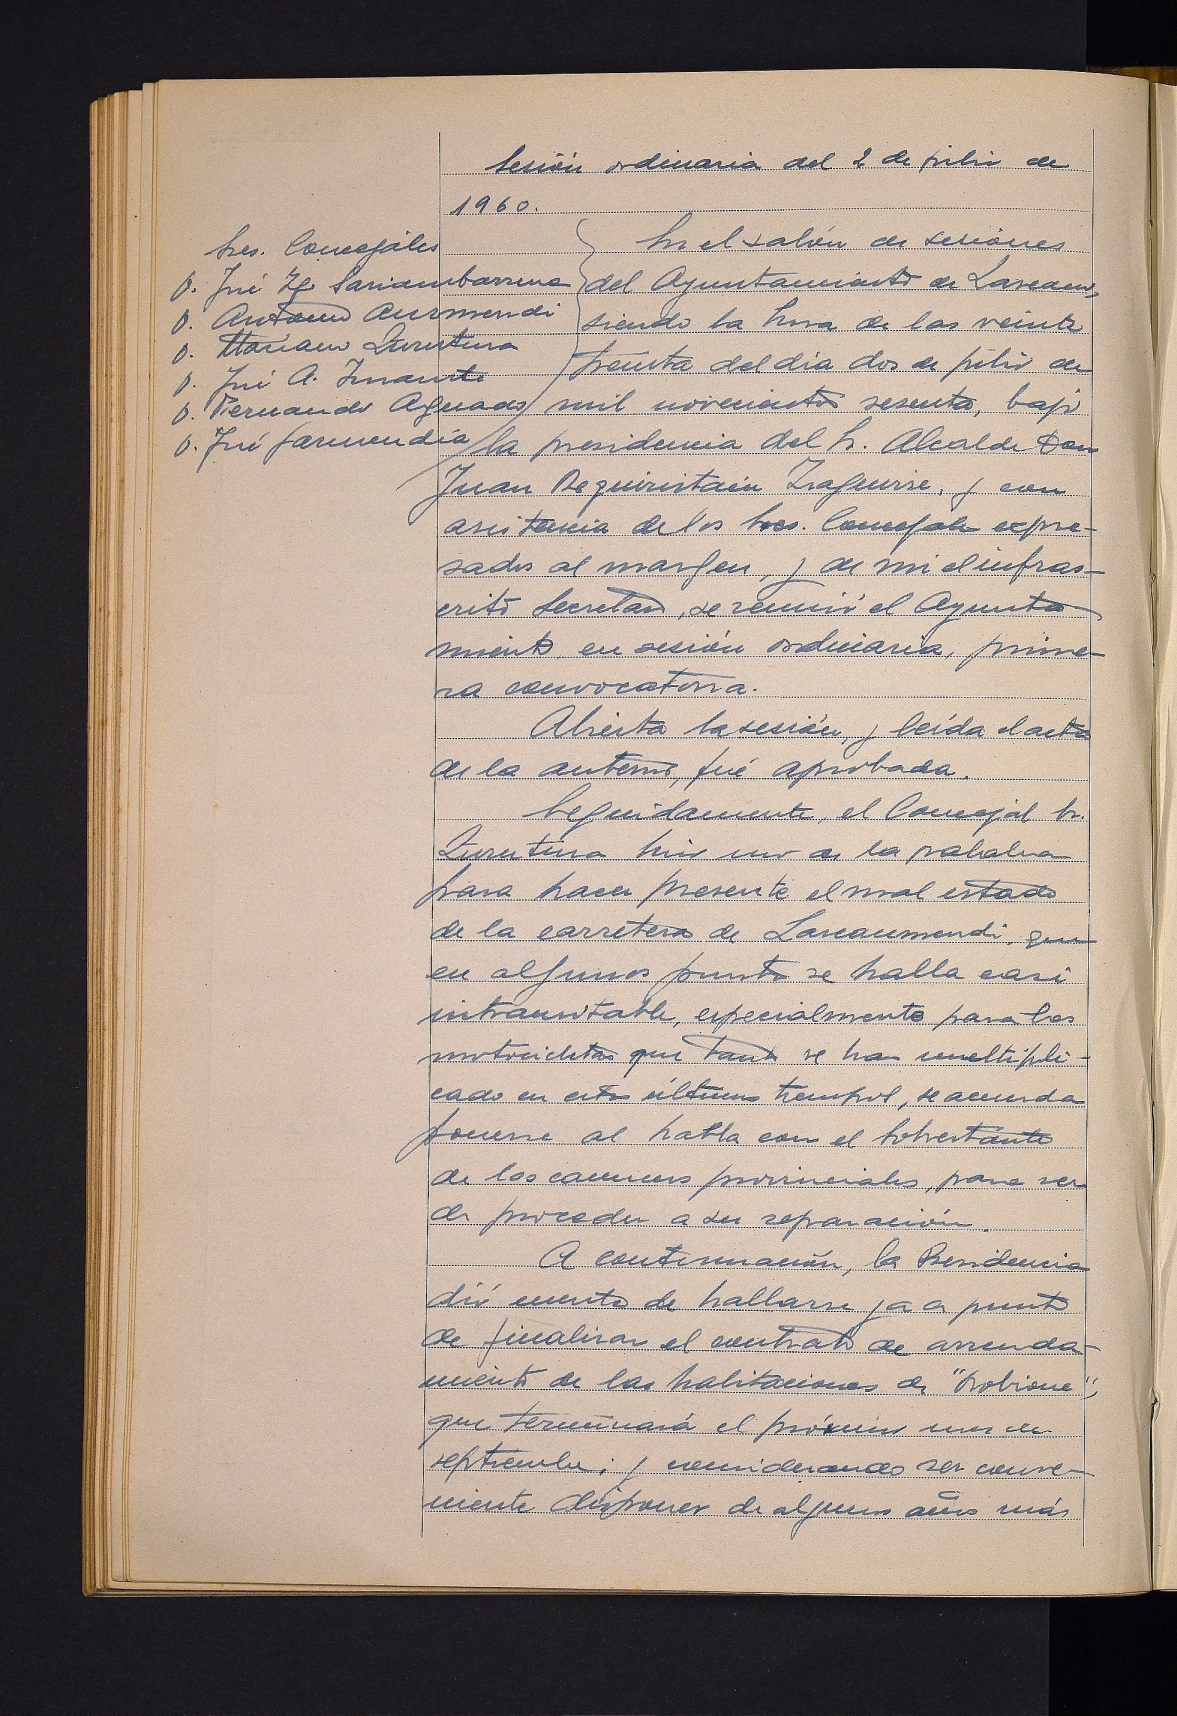 Sesión ordinaria del 2 de julio de
1960.
Sres. Concejales
D. José Ig. Sarianbarrena
D. Antonio Auzmendi
D. Mariano Zurutuza
D. José A. Inzausti
D. Fernando Aguado
D. José Garmendia
En el salón de sesiones
del Ayuntamiento de Lazcano,
siendo la hora de las veinte
treinta del día dos de julio de
mil novecientos sesenta, bajo
la presidencia del Sr. Alcalde Don
Juan Beguiristain Izaguirre, y con
asistencia de los Sres. Concejales expre-
sados al margen, y de mi el infras-
crito Secretario, se reunió el Ayunta-
miento, en sesión ordinaria, prime-
ra convocatoria.
Abierta la sesión, y leída el acta
de la anterior, fué aprobada.
Seguidamente, el Concejal Sr.
Zurutuza hizo uso de la palabra
para hacer presente el mal estado
de la carretera de Lazcaumendi, que
en algunos puntos se halla casi
intransitable, especialmente para las
motocicletas que tanto se han multipli-
cado en estos últimos tiempos, se acuerda
ponerse al habla con el Sobrestante
de los caminos provinciales, para ver
de proceder a su reparación.
A continuación, la Presidencia
dió cuenta de hallarse ya a punto
de finalizar el contrato de arrenda-
miento de las habitaciones de
que terminará el próximo mes de
septiembre; y considerando ser conve-
niente disponer de algunos años más